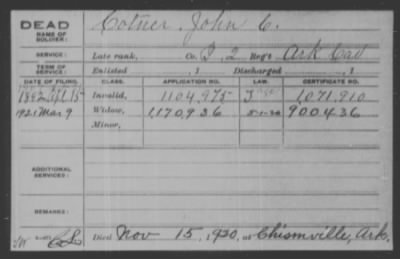 DEAD Cotner, John C.
NAME OF SOLDIER:
SERVICE: Late rank, Co. I, 2 Reg't Ark Cav
TERM OF SERVICE: Enlisted , 1 Discharged , 1
DATE OF FILING. CLASS. APPLICATION NO. LAW. CERTIFICATE NO.
1892 Invalid, 1104,975 1,071,910
1921 Mar 9 Widow, 1,170,936 5-1-20 900436
Minor,
ADDITIONAL SERVICES:
REMARKS:
Died Nov 15, 1920, at Chismville, Ark.